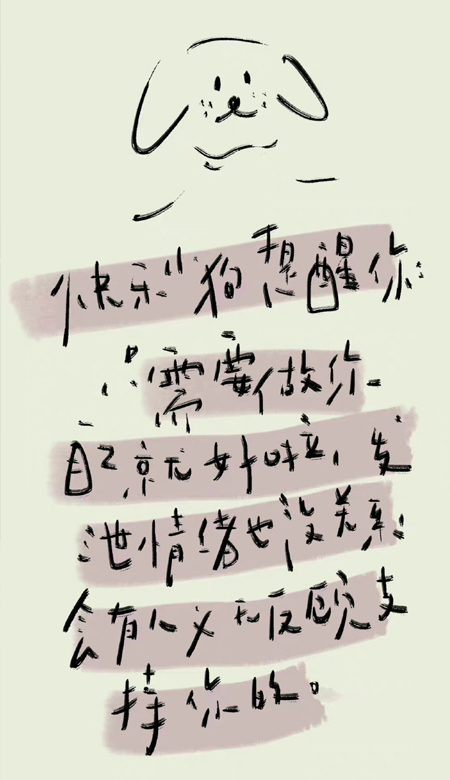 快乐小狗提醒你:
只需要做你
自己就好啦,发
泄情绪也没关系
会有人义无反顾支
持你的。